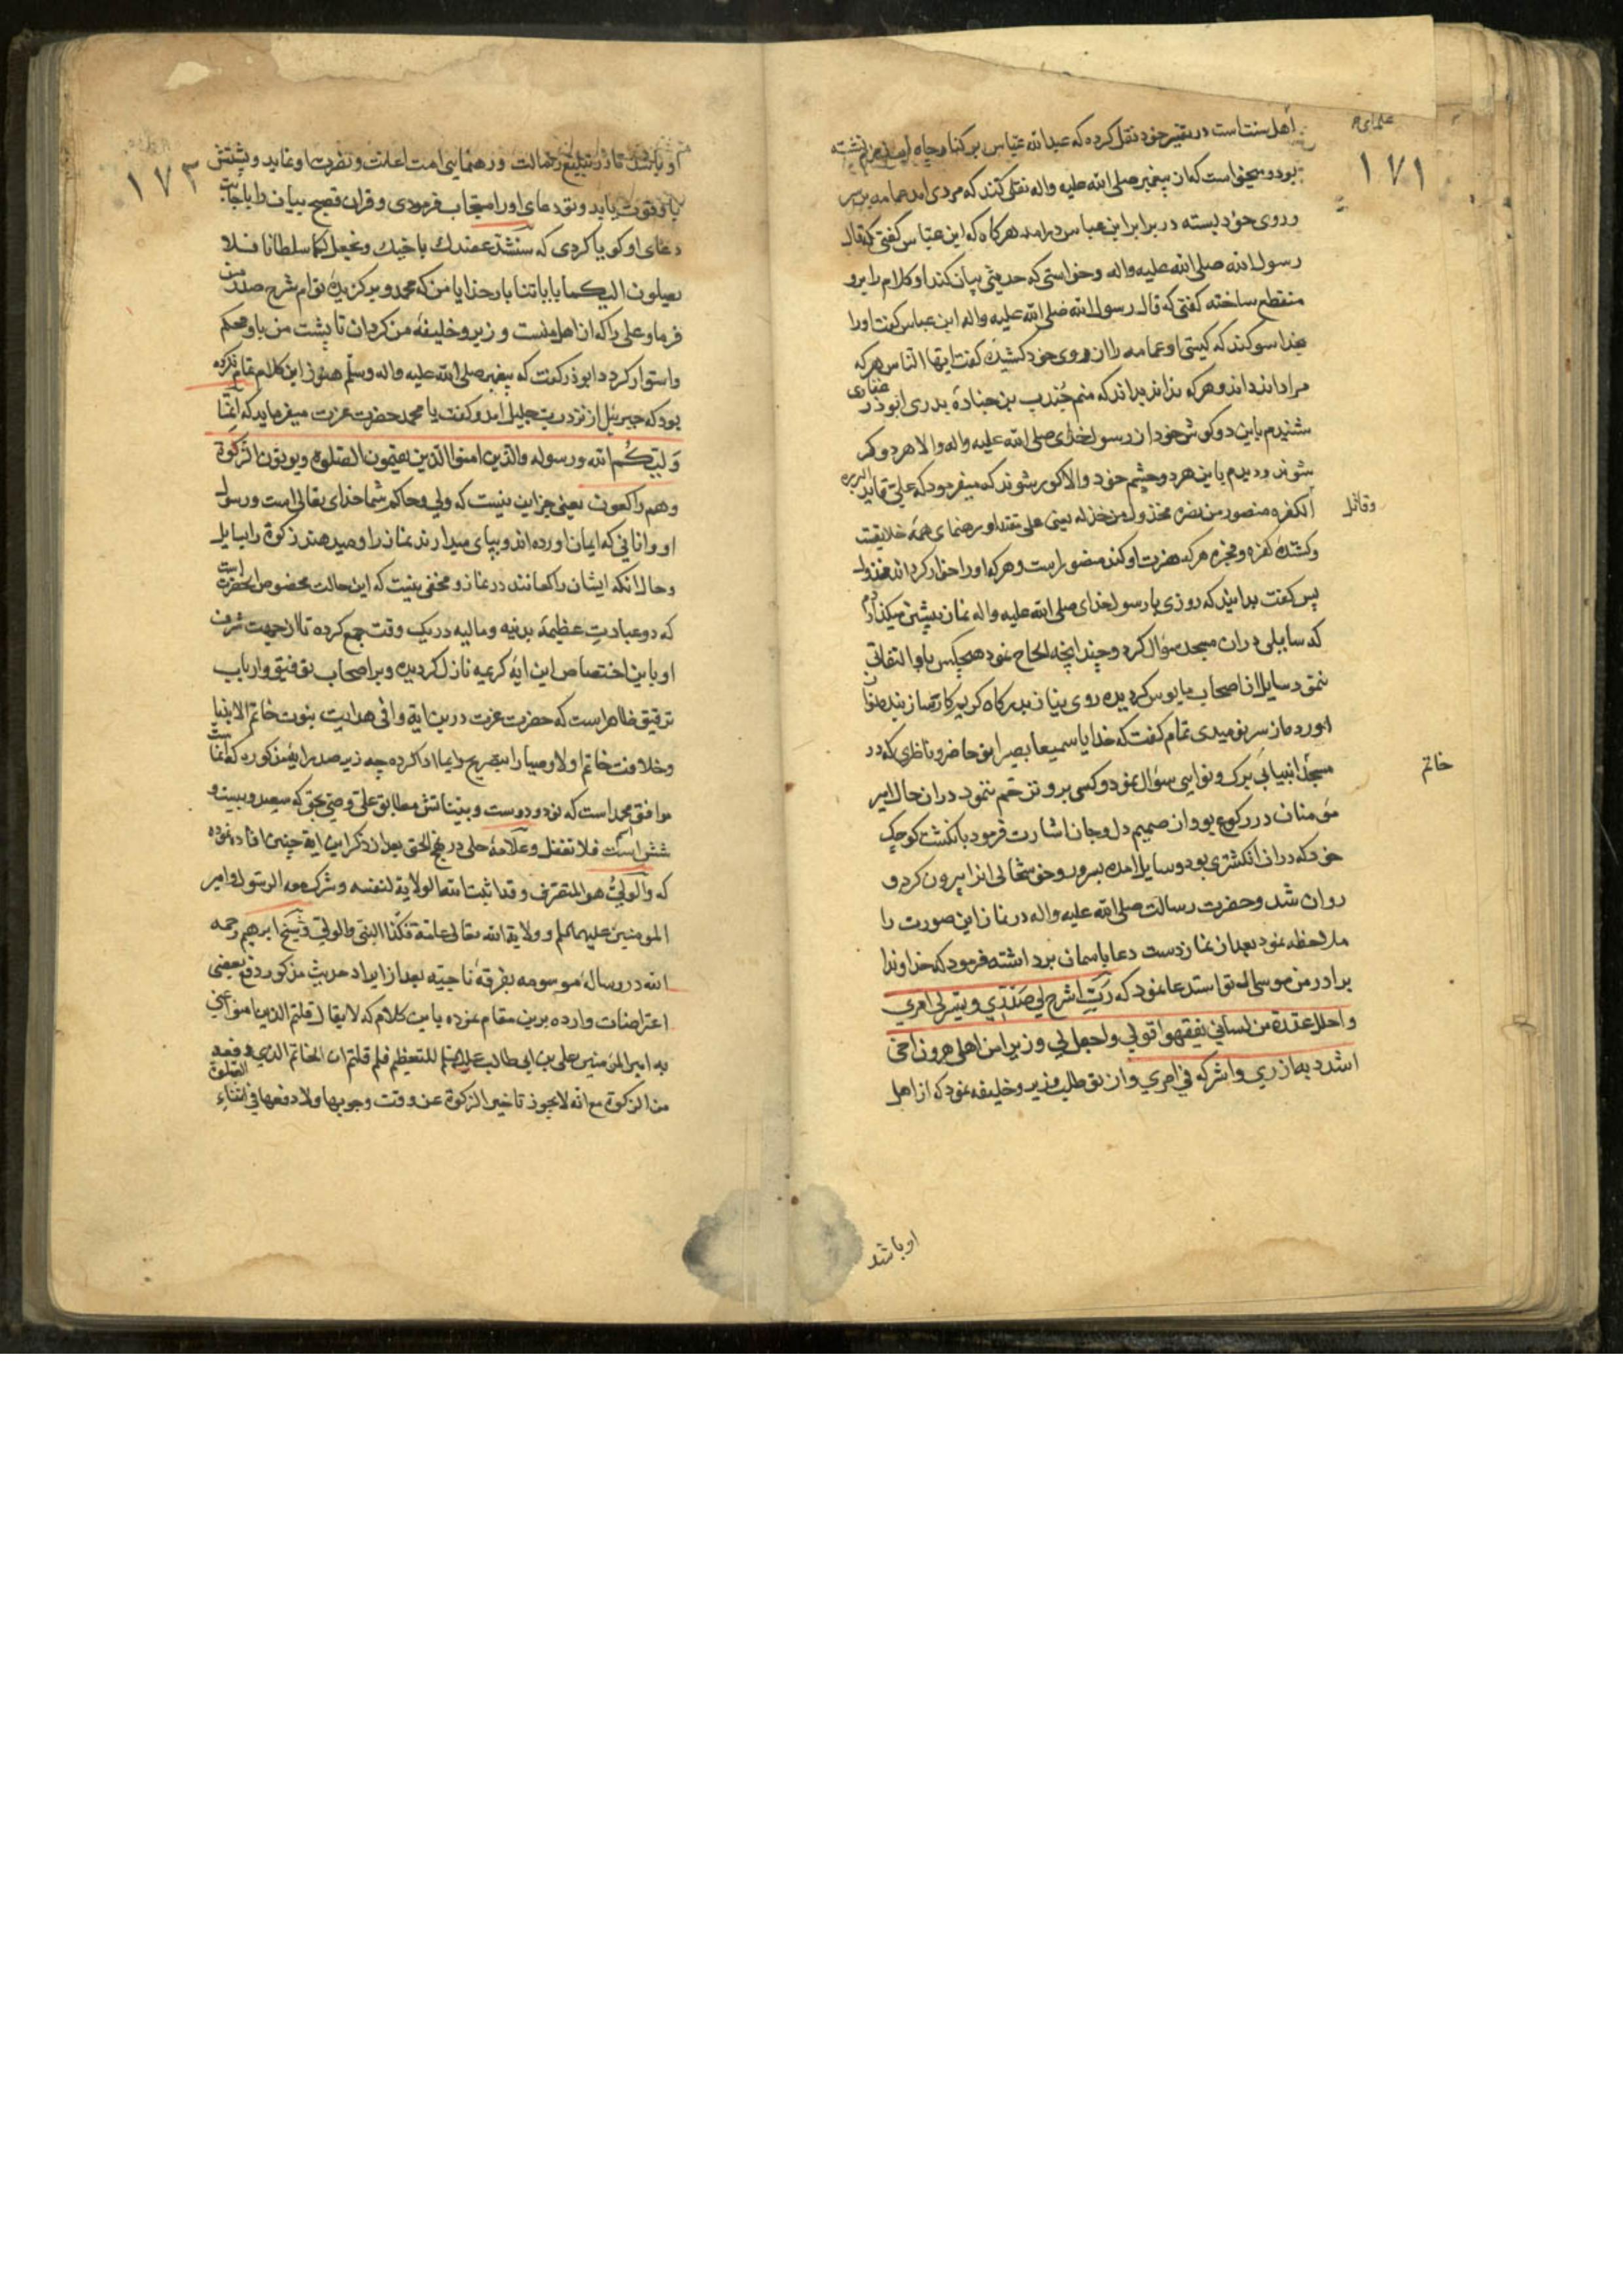 علمای
۱۷۱
اهل سنت است در تفسیر خود نقل کرده که عبد الله عباس بر کنار چاه زمزم نشسته
بود و میخواست که از پیغمبر صلی الله علیه واله نقلی کند که مردی امد عمامه بر سر
و روی خود بسته در برابر ابن عباس درامد هرکاه که ابن عباس کفتی که قال
رسول الله صلی الله علیه واله و خواستی که حدیثی بیان کند او کلام را برو
منقطع ساخته کفتی که قال رسول الله صلی الله علیه واله ابن عباس کفت اورا
بخدا سوکند که کیستی او عمامه را از روی خود کشیده کفت ایها الناس هر که
مرا داند داند و هرکه نداند بداند که منم جندب بن جناده بدری ابوذر غفاری
شنیدم باین دو کوش خود از رسول خدای صلی الله علیه واله والا هر دو کر
شوند و دیدم باین هر دو چشم خود والا کور شوند که میفرمود که علی قاید البرره
وقاتل
الکفره منصور من نصره مخذول من خذله یعنی علی مقتدا و رهنمای همه خلایقست
و کشنده کفره و فجره هرکه نصرت او کند منصور است و هرکه اورا خوار کرداند مخذول
پس کفت بدانید که روزی با رسول خدای صلی الله علیه واله نماز پیشین میکذاردم
که سایلی دران مسجد سؤال کرد و چندانچه الحاح نمود هیچکس باو التفاتی
ننمود سایل از اصحاب مایوس کردیده روی نیاز بدرکاه کریم کارساز بنده نواز
اورد و از سر نومیدی تمام کفت که خدایا سمیعا بصیرا تو حاضر و ناظری که در
مسجد انبیایی برک و نوایی سؤال نمود و کسی برو ترحم ننمود دران حال امیر
خاتم
مؤمنان در رکوع بود از صمیم دل و جان اشارت فرمود بانکشت کوچک
خود که دران انکشتری بود و سایل امده بسرور و خوشحالی انرا بیرون کرد و
روان شد و حضرت رسالت صلی الله علیه واله در نماز این صورت را
ملاحظه نمود بعد از نماز دست دعا باسمان برداشته فرمود که خداوندا
برادر من موسی از تو استدعا نمود که رب اشرح لی صدری و یسر لی امری
واحلل عقدة من لسانی یفقهوا قولی واجعل لی وزیرا من اهلی هرون اخی
اشدد به ازری واشرکه فی امری و از تو طلب وزیر و خلیفه نمود که از اهل
او باشد
۱۷۲
او باشد تا در تبلیغ رسالت و رهنمایی امت اعانت و نصرت او نماید و پشتش
باو قوت یابد و تو دعای اورا مستجاب فرمودی و قران فصیح بیان را باجابت
دعای او کویا کردی که سنشد عضدک باخیک ونجعل لکما سلطانا فلا
یصلون الیکما بایاتنا بار خدایا من که محمد و برکزیده توام شرح صدر من
فرما و علی را که از اهل منست وزیر و خلیفه من کردان تا پشت من باو محکم
و استوار کردد ابوذر کفت که پیغمبر صلی الله علیه واله وسلم هنوز این کلام تمام نکرده
بود که جبریل از نزد رب جلیل امد و کفت یا محمد حضرت عزت میفرماید که انما
ولیکم الله ورسوله والذین امنوا الذین یقیمون الصلوة ویوتون الزکوة
وهم راکعون یعنی جز این نیست که ولی و حاکم شما خدای تعالی است و رسول
او و انانی که ایمان اورده اند و بپای میدارند نماز را و میدهند زکوة را بسایل
و حال انکه ایشان راکعانند در نماز و مخفی نیست که این حالت مخصوص انحضرت است
که دو عبادت عظیمه بدنیه و مالیه در یک وقت جمع کرده تا از جهت شرف
او باین اختصاص این ایه کریمه نازل کردیده و بر اصحاب توفیق و ارباب
تدقیق ظاهر است که حضرت عزت درین ایة وافی هدایت نبوت خاتم الانبیا
و خلافت خاتم اولاوصیا را بتصریح و ایما ادا کرده چه زبر صدر ایة مذکوره که انماست
موافق محمد است که نود و دوست و بیناتش مطابق علی وصی بحق که سیصد و بیست و
شش است فلا تغفل و علامه حلی در نهج الحق بعد از ذکر این ایه چنین افاده نموده
که والولی هو المتصرف وقد اثبت الله تعالی الولایة لنفسه وشرک معه الرسول وامیر
المومنین علیهما السلم وولایة الله تعالی عامة فکذا النبی والولی و شیخ ابرهیم رحمه
الله در رساله موسومه بفرقه ناجیه بعد از ایراد حدیث مذکور دفع بعضی
اعتراضات وارده برین مقام نموده باین کلام که لا یقال قلتم الذین امنوا ای
به امیر المؤمنین علی بن ابی طالب علیه السلم للتعظیم فلم قلتم ان الخاتم الذی دفعه
من الزکوة مع انه لا یجوز تاخیر الزکوة عن وقت وجوبها ولا دفعها فی اثناء الصلوة